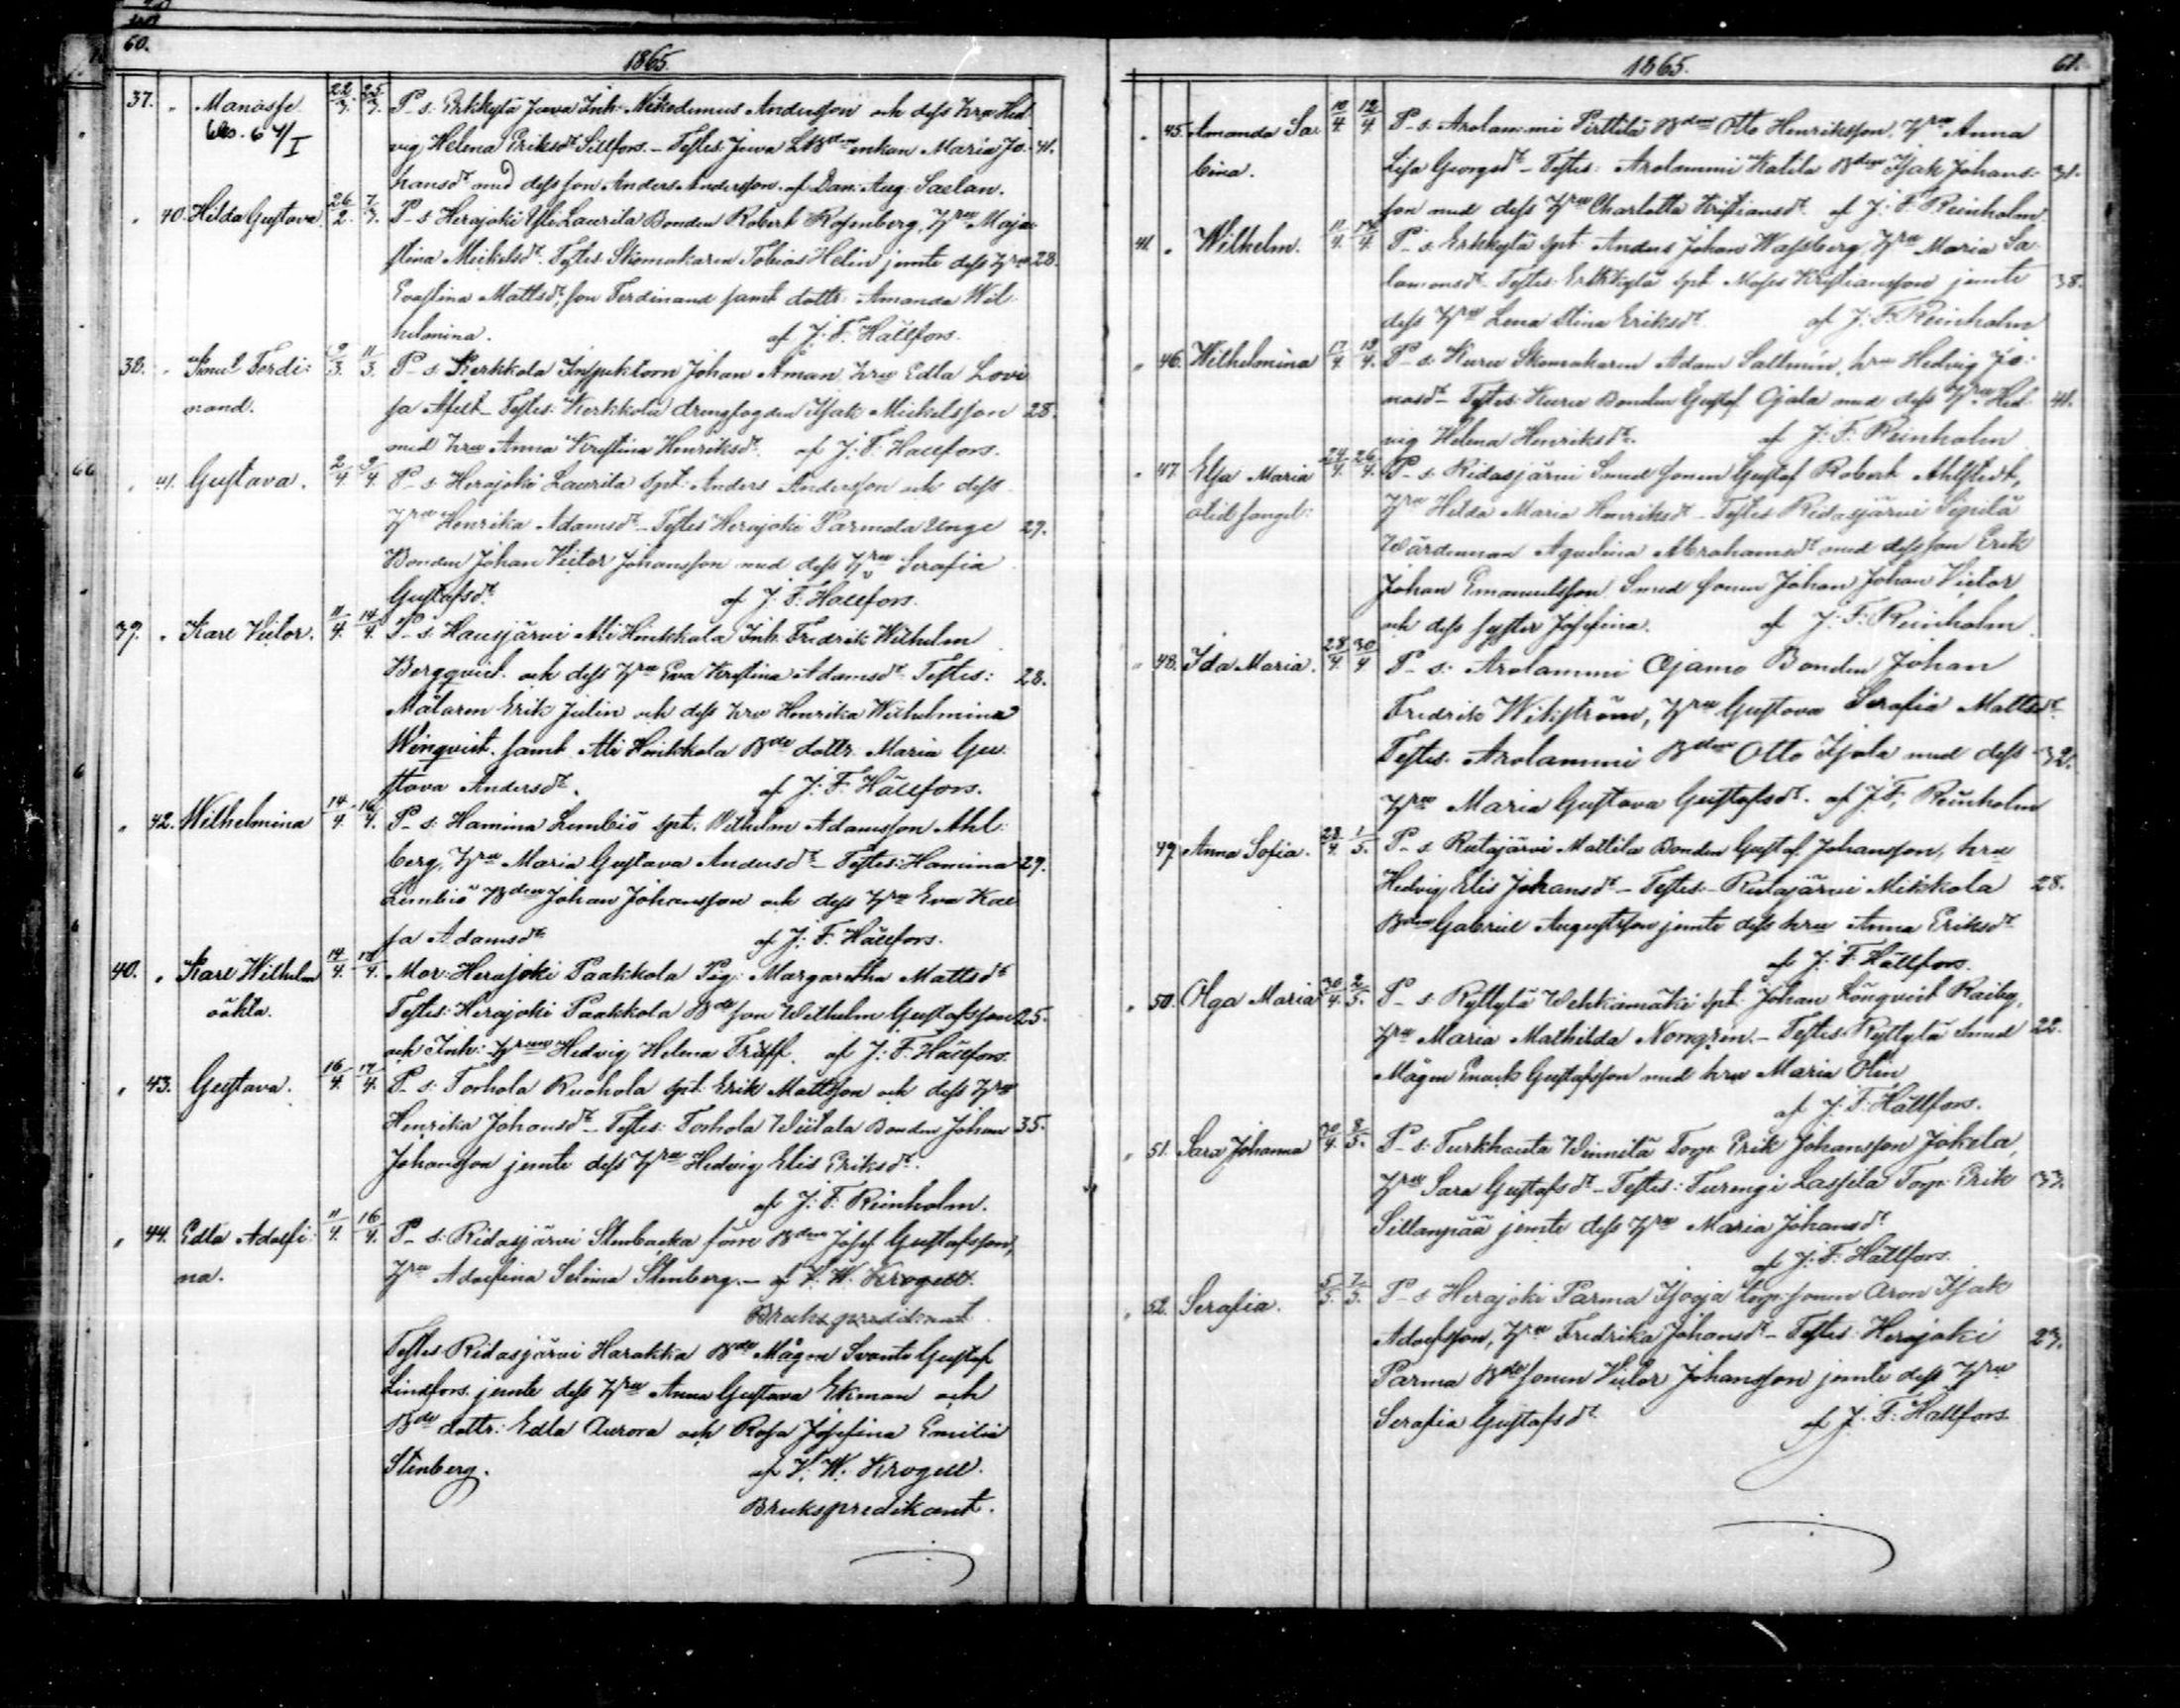 60.
1865.
37. " Manasse 22/3. 25/3. P-s: Erkkylä Juva Inh: Nikodemus Andersson och dess hru Hed-
vig Helena Eriksdt Sillfors. - Testes: Juva Bdeenkan Maria Jo- 41.
hansdt med dess son Anders Andersson. af Dan: Aug: Saelan.
" 40. Hilda Gustava 26/2. 7/3. P-s Herajoki Yli Laurila Bonden Robert Rosenberg, Hru Maja
stina Mickelsdt. Testes Skomakaren Tobias Helin jemte dess hru 28.
Evastina Mattsdt, son Ferdinand samt dottr: Amanda Wil-
helmina. af J: F: Hällfors.
38. " Ferdi- 9/3. 11/3. P-s: Kerkkola Inspektorn Johan Åman hru Edla Lovi
nand.
sa - Testes: Kerkkola drengfogden Isak Mickelsson 28.
med hru Anna Kristina Henriksdt. af J: F: Hällfors.
" 41. Gustava. 2/4. 9/4. P-s: Herajoki Laurila spt: Anders Andersson och dess
hru Henrika Adamsdt - Testes Herajoki Parmala Unge 29.
Bonden Johan Victor Johansson med dess hru Serafia
Gustafsdt. af J: F: Hällfors.
39. " Karl Victor. 11/4. 14/4. P-s: Hausjärvi Ali Hinkkala Inh. Fredrik Wilhelm
Bergqvist. och dess hru Eva Kristina Adamsdt. Testes: 28.
Målaren Erik Julin och dess hru Henrika Wilhelmina
Winqvist. samt Ali Hinkkala Bde dottr: Maria Gu-
stava Andersdt. af J: F: Hällfors.
" 42. Wilhelmina 14/4. 16/4. P-s: Hamina Lembiö spt. Wilhelm Adamsson Ahl-
berg, hru Maria Gustava Andersdt - Testes: Hamina 29.
Lembiö Bden Johan Johansson och dess hru Eva Kai
sa Adamsdt. af J: F: Hällfors.
40. " Karl Wilhelm 14/4. 17/4. Mor: Herajoki Paakkola Pig: Margaretha Mattsdt
oäkta. Testes: Herajoki Paakkola Bde son Wilhelm Gustafsson 25.
och Inh: hrun Hedvig Helena Träff. af J: F: Hällfors.
" 43. Gustava. 16/4. 17/4. P-s: Torhola Ruohola spt: Erik Mattsson och dess hru
Henrika Johansdt - Testes: Torhola Wiitala Bonden Johan 35.
Johansson jemte dess hru Hedvig Elis Eriksdt.
af J: F: Reinholm.
" 44. Edla Adolfi- 11/4. 16/4. P-s: Ridasjärvi Stenbacka förre Bden Josef Gustafsson,
na. hru Adolfina Selina Stenberg. - af F. W. Krogell.
Brukspredikant
Testes Ridasjärvi Harakka Bde Mågen Svante Gustaf
Lindfors. jemte dess hru Anna Gustava Ekman och
Bde dottr: Edla Aurora och Rosa Josefina Emilia
Stenberg. af F. W. Krogell.
Brukspredikant.
1865.
61.
" 45. Amanda Sa- 10/4. 12/4. P-s. Arolammi Pirttilä Bden Otto Henriksson, hru Anna
bina. Lisa Georgsdt - Testes: Arolammi Katila Bden Isak Johans- 31.
son med dess hru Charlotta Kristiansdt. af J: F: Reinholm
41. " Wilhelm. 11/4. 17/4. P-s: Erkkylä spt. Anders Johan Wassberg, hru Maria Sa-
lomonsdt - Testes: Erkkylä spt Moses Kristiansson jemte 38.
dess hru Lena Stina Eriksdt. af J: F: Reinholm
" 46. Wilhelmina 17/4. 19/4. P-s: Kuru Skomakaren Adam Sallmin, hru Hedvig Jo-
nasdt - Testes: Kuru Bonden Gustaf Ojala med dess hru Hed- 41.
vig Helena Henriksdt. af J: F: Reinholm
" 47. Elsa Maria 24/4. 26/4. P-s: Ridasjärvi Smed sonen Gustaf Robert Ahlstedt,
hru Hilda Maria Henriksdt - Testes Ridasjärvi Sipilä
Wärdinnan Aqvelina Abrahamsdt med dess son Erik
Johan Emanuelsson, Smed sonen Johan Johan Victor
och dess syster Josefina. af J: F: Reinholm
" 48. Ida Maria. 28/4. 30/4 P-s: Arolammi Ojamo Bonden Johan
Fredrik Wikström, hru Gustava Serafia Mattsdt.
Testes. Arolammi Bden Otto Ojala med dess 32.
hru Maria Gustava Gustafsdt. af J: F: Reinholm
49. Anna Sofia. 28/4. 1/5. P-s. Rutajärvi Mattila Bonden Gustaf Johansson, hru
Hedvig Elis Johansdt - Testes: - Rutajärvi Mikkola 28.
Bden Gabriel Augustsson jemte dess hru Anna Eriksdt
af J: F: Hällfors.
" 50. Olga Maria 30/4. 2/5. P-s: Ryttylä Wehkamäki spt: Johan Lönqvist
hru Maria Mathilda Norrgren. - Testes: Ryttylä Smed 22.
Mågen Enock Gustafsson med hru Maria Olin
af J: F: Hällfors.
" 51. Sara Johanna 30/4. 8/5. P-s: Turkhauta Winnilä Torp: Erik Johansson Jokela,
hru Sara Gustafsdt - Testes: Turengi Lassila Torp: Erik 37.
Sillanpää jemte dess hru Maria Johansdt
af J: F: Hällfors.
" 52. Serafia. 5/5. 7/5. P-s Herajoki Parma Isooja torp: sonen Aron Isak
Adolfsson, hru Fredrika Johansdt - Testes: Herajoki 27.
Parma Bde sonen Victor Johansson jemte dess hru
Serafia Gustafsdt. af J: F: Hällfors